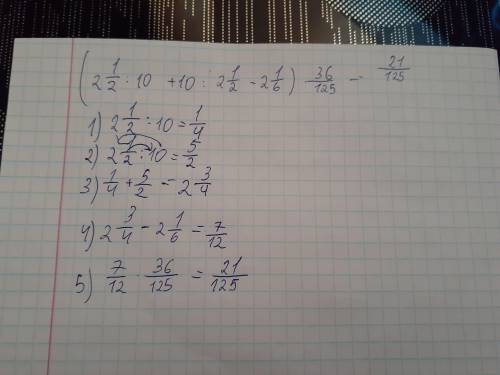 (2 1/2 : 10 + 10 : 2 1/2 - 2 1/6) 36/125 = 21/125
1) 2 1/2 : 10 = 1/4
2) 2 1/2 : 10 = 5/2
3) 1/4 + 5/2 = 2 3/4
4) 2 3/4 - 2 1/6 = 7/12
5) 7/12 · 36/125 = 21/125